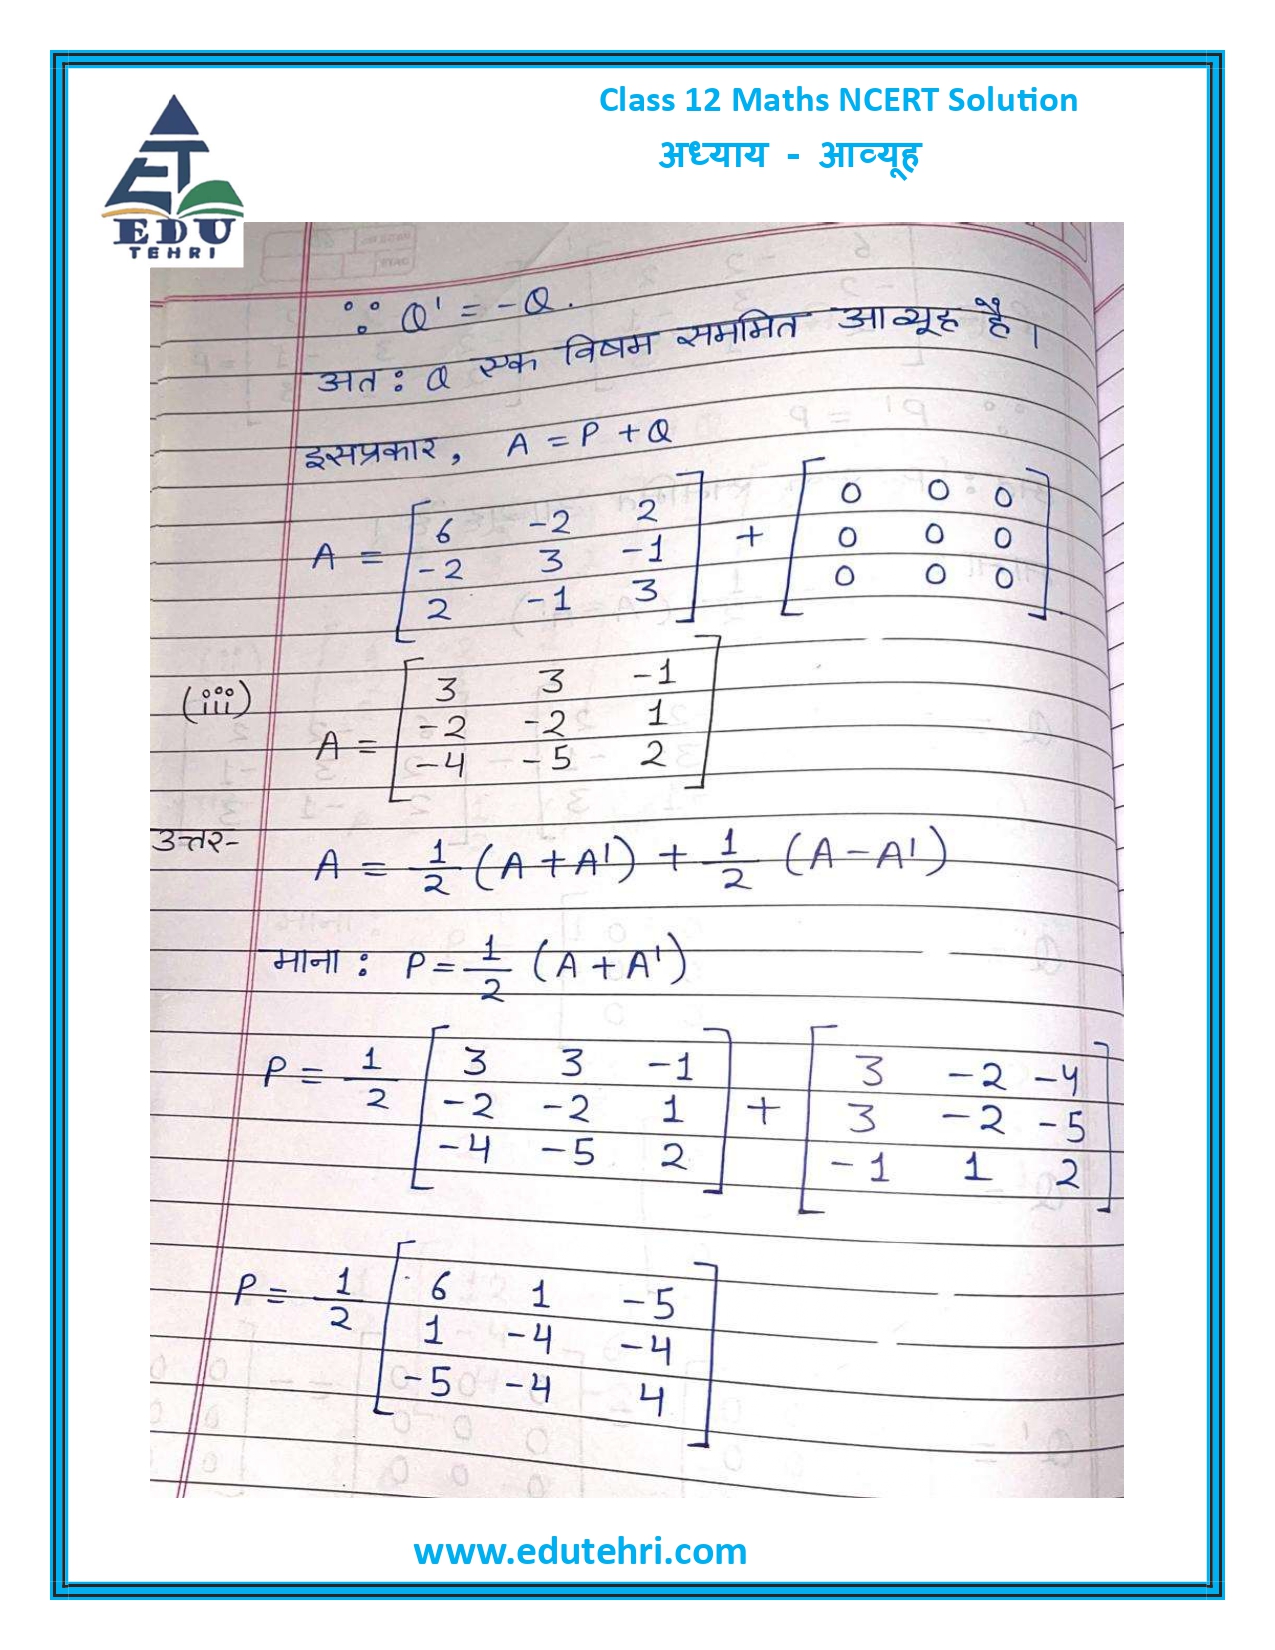 Class 12 Maths NCERT Solution
अध्याय - आव्यूह
ET
EDU
TEHRI
∵ Q' = -Q.
अतः Q एक विषम सममित आव्यूह है।
इसप्रकार, A = P + Q
A = [6 -2 2
-2 3 -1
2 -1 3] + [0 0 0
0 0 0
0 0 0]
(iii) A = [3 3 -1
-2 -2 1
-4 -5 2]
उत्तर- A = 1/2 (A + A') + 1/2 (A - A')
माना : P = 1/2 (A + A')
P = 1/2 [3 3 -1
-2 -2 1
-4 -5 2] + [3 -2 -4
3 -2 -5
-1 1 2]
P = 1/2 [6 1 -5
1 -4 -4
-5 -4 4]
www.edutehri.com